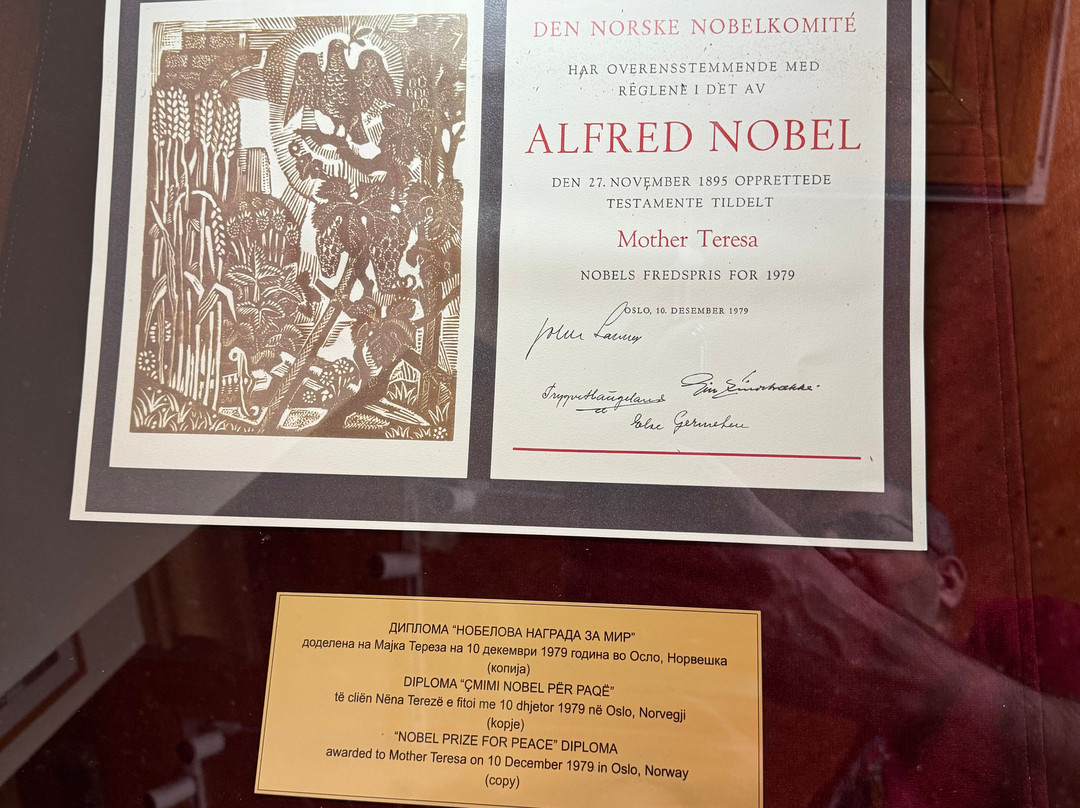 DEN NORSKE NOBELKOMITÉ
HAR OVERENSSTEMMENDE MED
REGLENE I DET AV
ALFRED NOBEL
DEN 27. NOVEMBER 1895 OPPRETTEDE
TESTAMENTE TILDELT
Mother Teresa
NOBELS FREDSPRIS FOR 1979
OSLO, 10. DESEMBER 1979
ДИПЛОМА “НОБЕЛОВА НАГРАДА ЗА МИР”
доделена на Мајка Тереза на 10 декември 1979 година во Осло, Норвешка
(копија)
DIPLOMA “ÇMIMI NOBEL PËR PAQË”
të cilën Nëna Terezë e fitoi me 10 dhjetor 1979 në Oslo, Norvegji
(kopje)
“NOBEL PRIZE FOR PEACE” DIPLOMA
awarded to Mother Teresa on 10 December 1979 in Oslo, Norway
(copy)